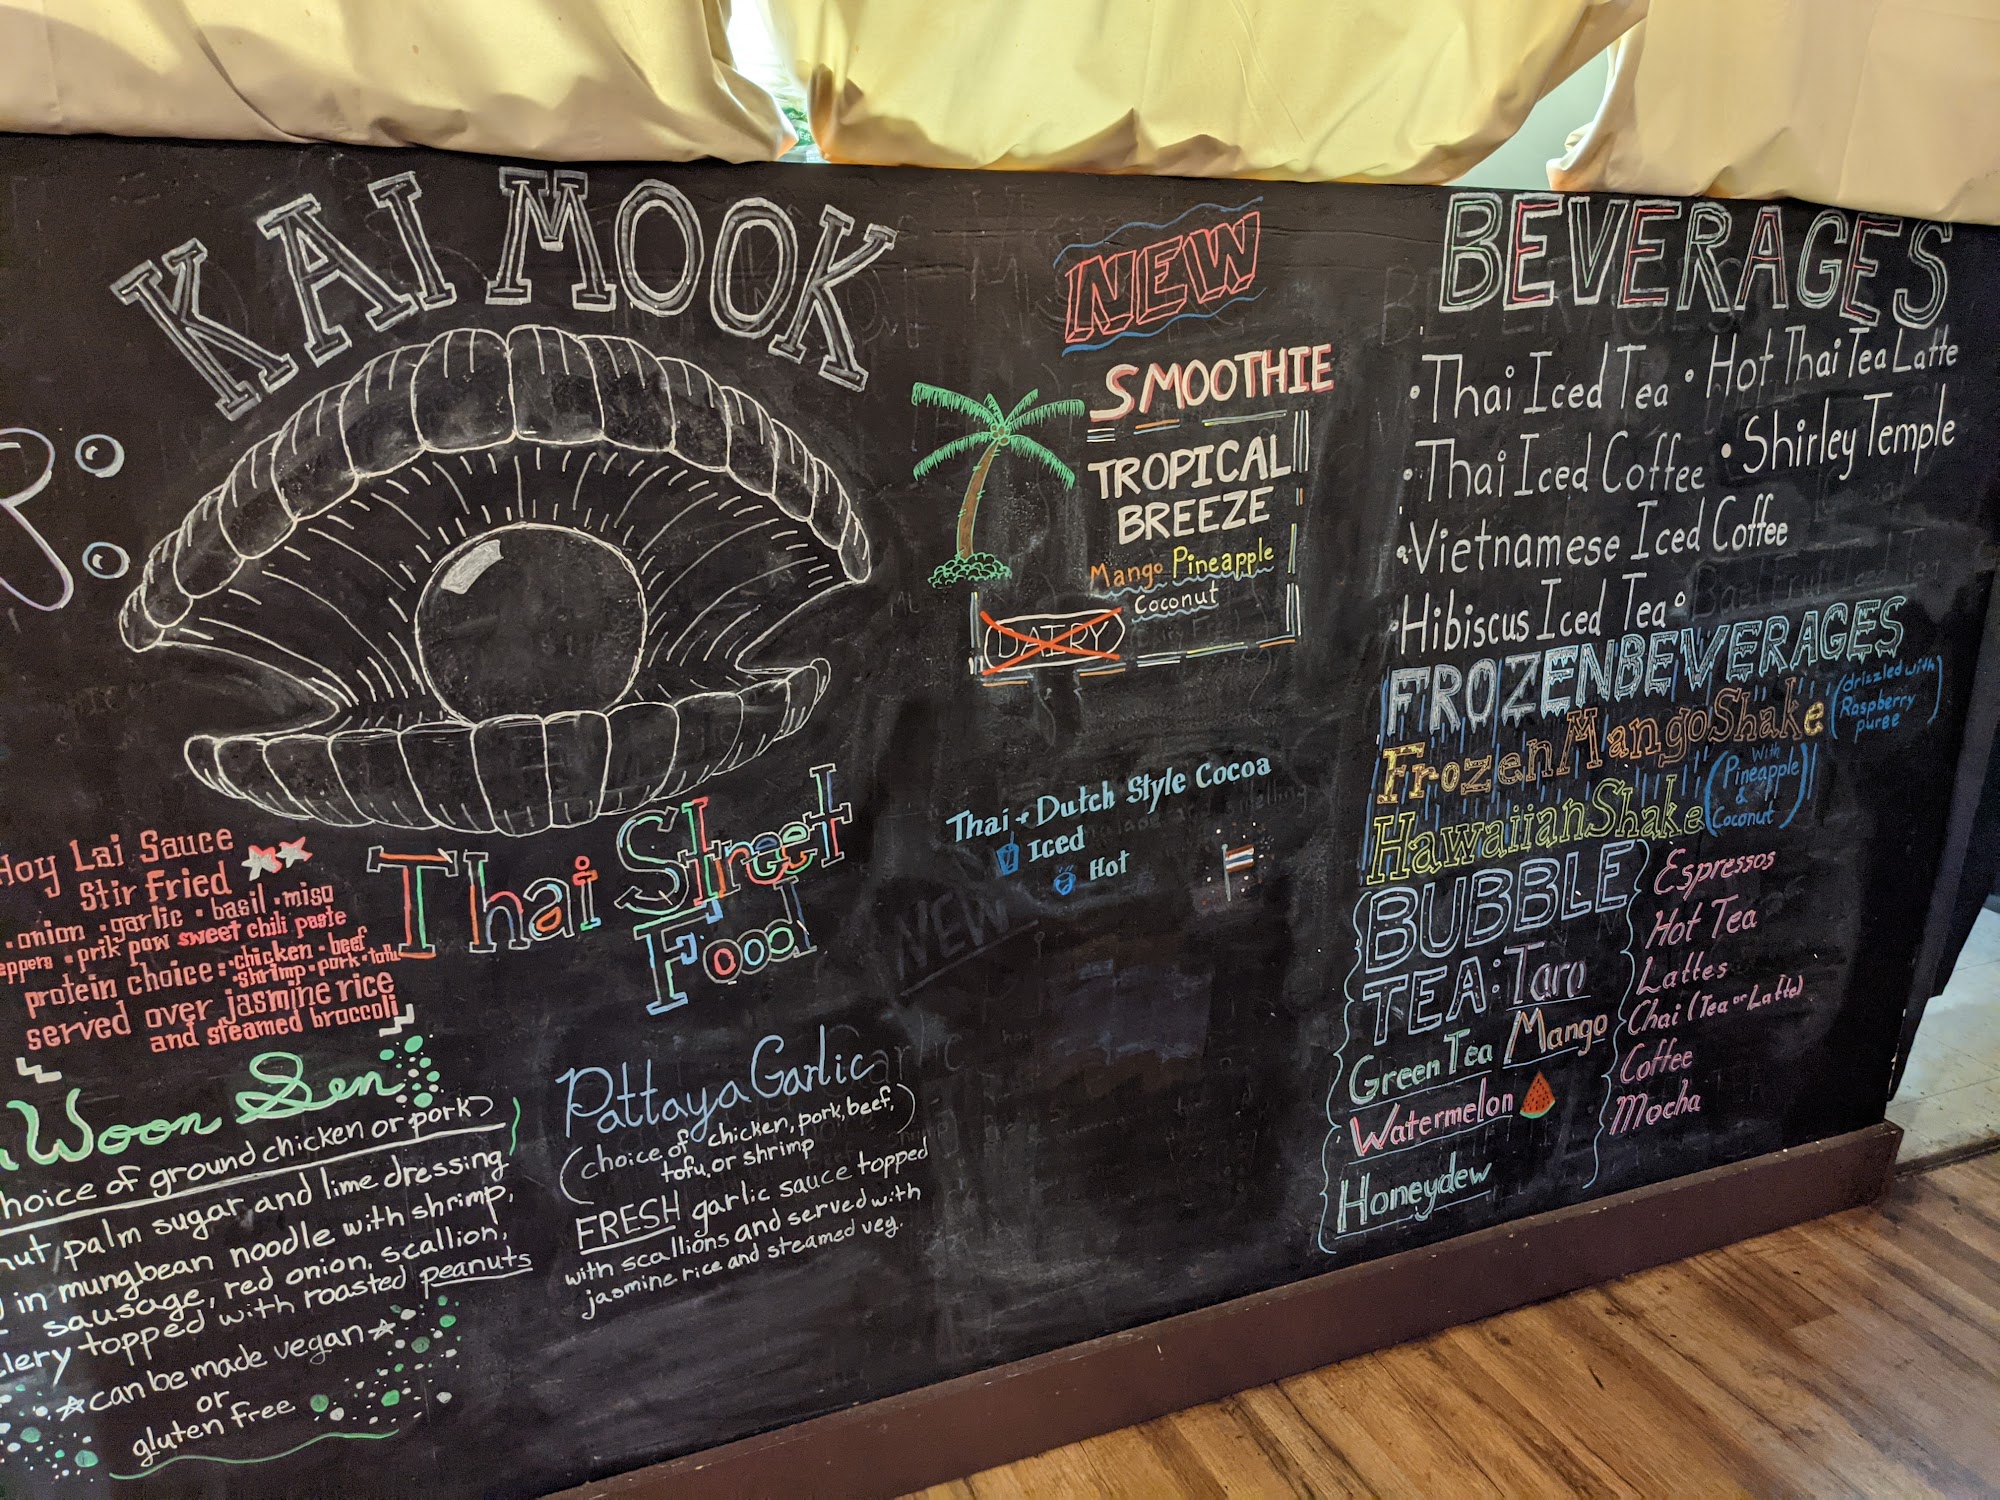 KAI MOOK
R
Thai Street
Food
Hoy Lai Sauce
Stir Fried
• onion • garlic • basil • miso
• prik pow sweet chili paste
protein choice: • chicken • beef
• shrimp • pork • tofu
served over jasmine rice
and steamed broccoli
Woon Sen
choice of ground chicken or pork)
palm sugar and lime dressing
in mungbean noodle with shrimp,
sausage, red onion, scallion,
topped with roasted peanuts
☆ can be made vegan ☆
or
gluten free
Pattaya Garlic
(choice of chicken, pork, beef,
tofu, or shrimp)
FRESH garlic sauce topped
with scallions and served with
jasmine rice and steamed veg.
NEW
SMOOTHIE
TROPICAL
BREEZE
Mango Pineapple
Coconut
DAIRY
Thai-Dutch Style Cocoa
Iced
Hot
NEW
BEVERAGES
• Thai Iced Tea • Hot Thai Tea Latte
• Thai Iced Coffee • Shirley Temple
• Vietnamese Iced Coffee
• Hibiscus Iced Tea •
FROZEN BEVERAGES
Frozen Mango Shake (drizzled with
Raspberry
puree)
Hawaiian Shake (with
Pineapple
&
Coconut)
BUBBLE
TEA: Taro
Green Tea Mango
Watermelon
Honeydew
Espressos
Hot Tea
Lattes
Chai (Tea or Latte)
Coffee
Mocha